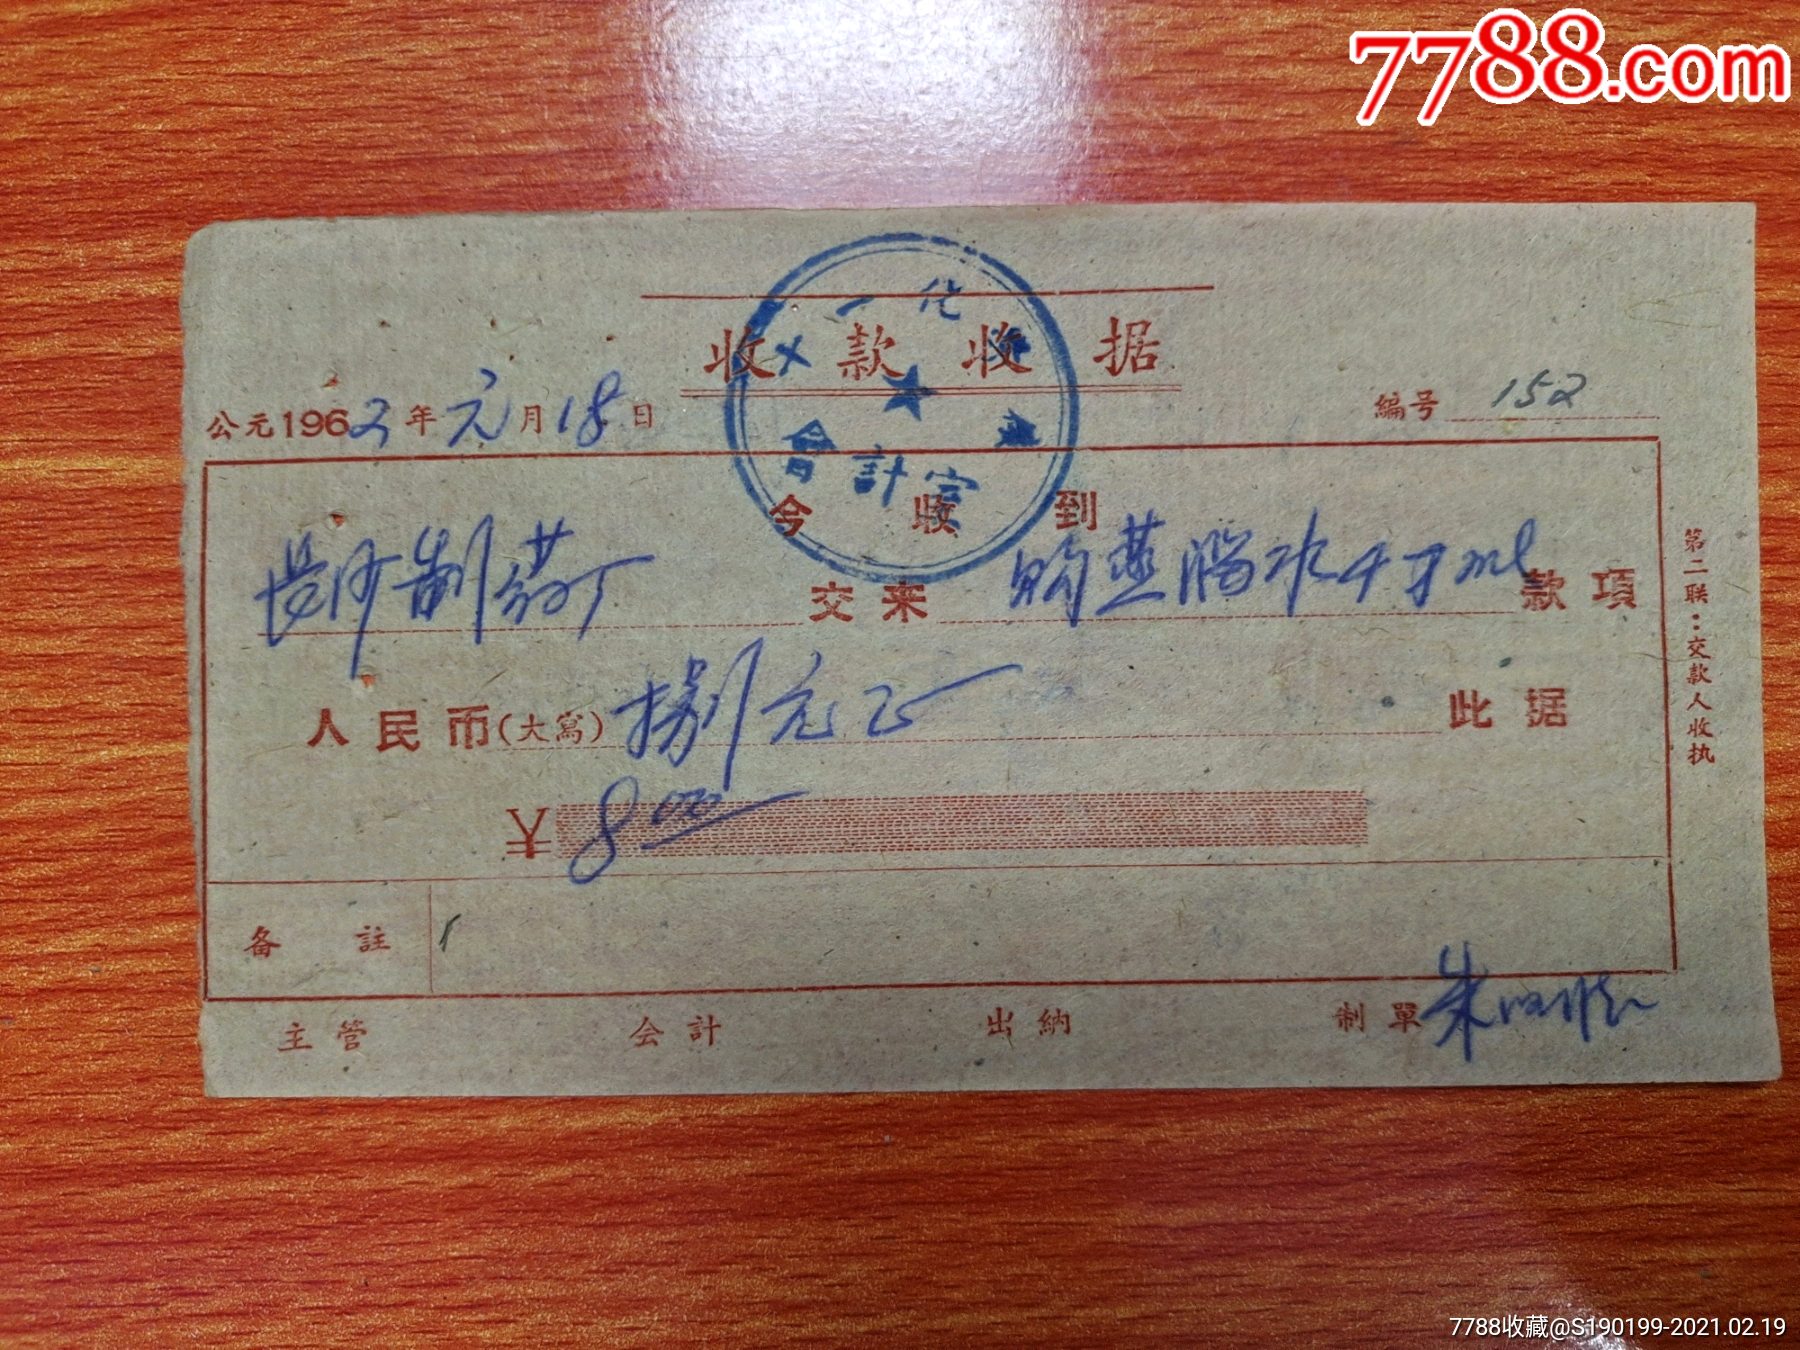 7788.com
一化
收款收据
公元1962年元月18日
编号 152
會計室
今收到
长沙制药厂 交来 购蒸馏水 款項
人民币(大寫) 捌元正 此据
¥ 8.00
备註
主管 会計 出納 制單 朱
第二联：交款人收执
7788收藏@S190199-2021.02.19